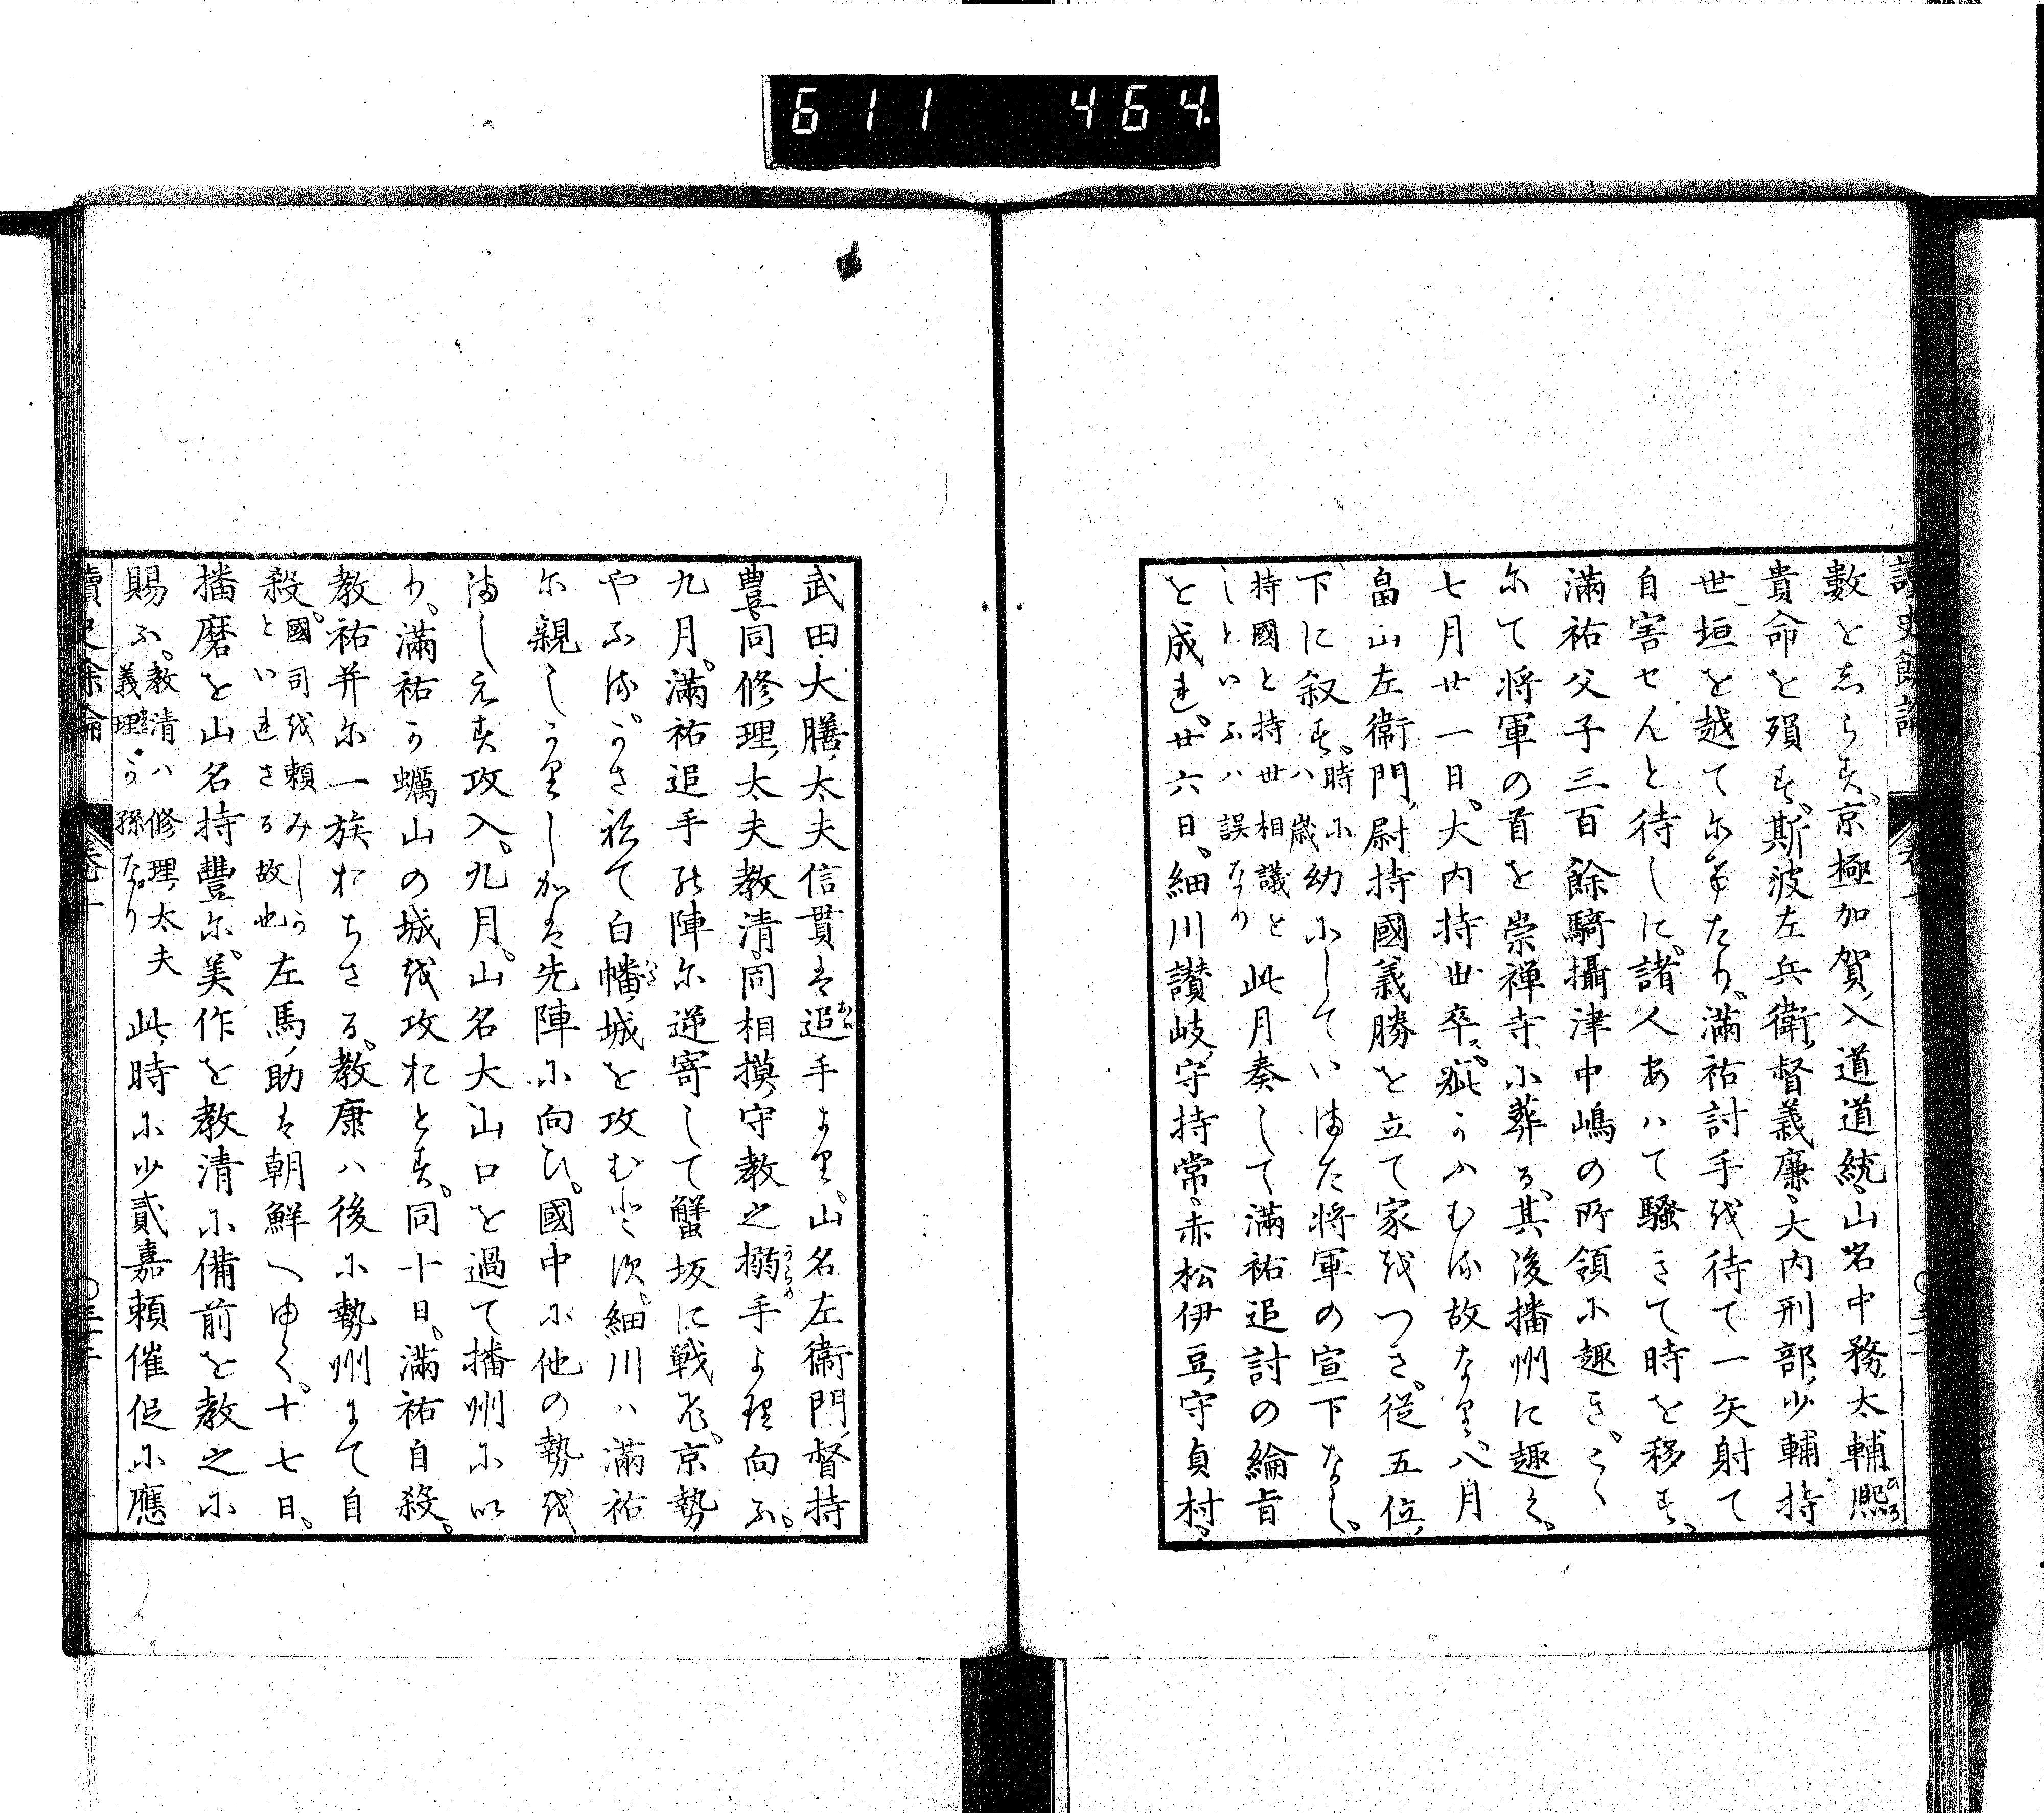 611 464
讀史餘論
數を志らす。京極加賀入道道統、山名中務太輔熈
貴命を殞す。斯波左兵衛督義廉、大内刑部少輔持
世垣を越てにけたり。滿祐討手を待て一矢射て
自害せんと待しに。諸人あハて騒きて時を移す。
滿祐父子三百餘騎攝津中嶋の所領に趣き。こゝ
にて将軍の首を崇禅寺に葬る。其後播州に趣く。
七月廿一日。大内持世卒。疵かハむる故なり。八月
畠山左衛門尉持國義勝を立て家をつき。從五位
下に叙す。時に八歳幼にしていまた将軍の宣下なし。
持國と持世相議と
しといふハ誤なり
此月奏して滿祐追討の綸旨
を成る。廿六日。細川讃岐守持常、赤松伊豆守貞村、
武田大膳太夫信貫は追手より。山名左衛門督持
豊同修理太夫教清。同相摸守教之搦手より向ふ。
九月。滿祐追手の陣に逆寄して蟹坂に戦ふ。京勢
やふる。かさねて白幡城を攻む。細川ハ滿祐
に親しかりしかは先陣に向ひ。國中に他の勢を
ましえす攻入。九月。山名大山口を過て播州に以
り。滿祐か蠣山の城を攻おとす。同十日。滿祐自殺。
教祐并に一族おちさる。教康ハ後に勢州にて自
殺。
國司を頼みしか
といれさる故也
左馬助は朝鮮へゆく。十七日。
播磨を山名持豊に。美作を教清に備前を教之に
賜ふ。
教清ハ修理太夫
義理か孫なり
此時に少貳嘉頼催促に應
讀史餘論